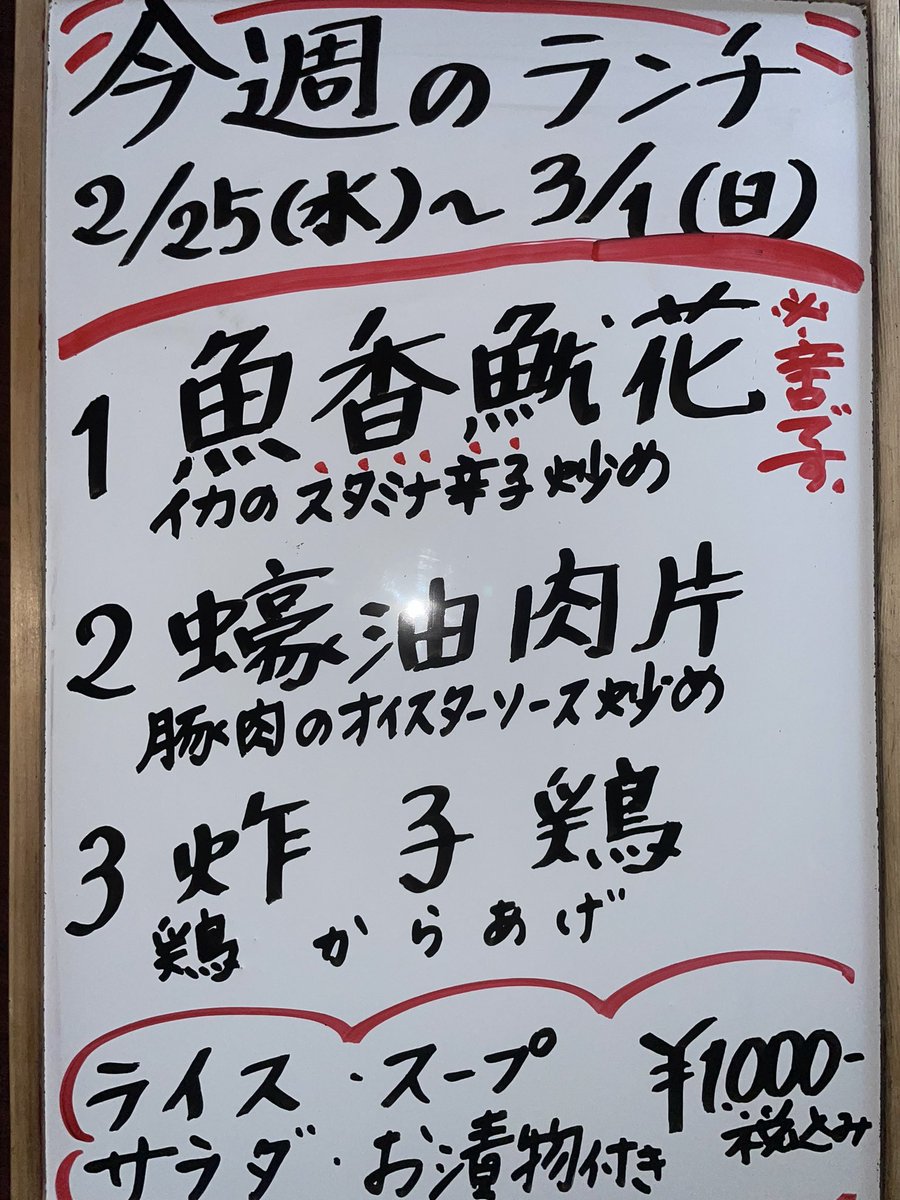 今週のランチ
2/25(水)～3/1(日)
1 魚香魷花
※辛です。
イカのスタミナ辛子炒め
2 蠔油肉片
豚肉のオイスターソース炒め
3 炸子鶏
鶏からあげ
ライス・スープ
¥1000-
税込み
サラダ・お漬物付き